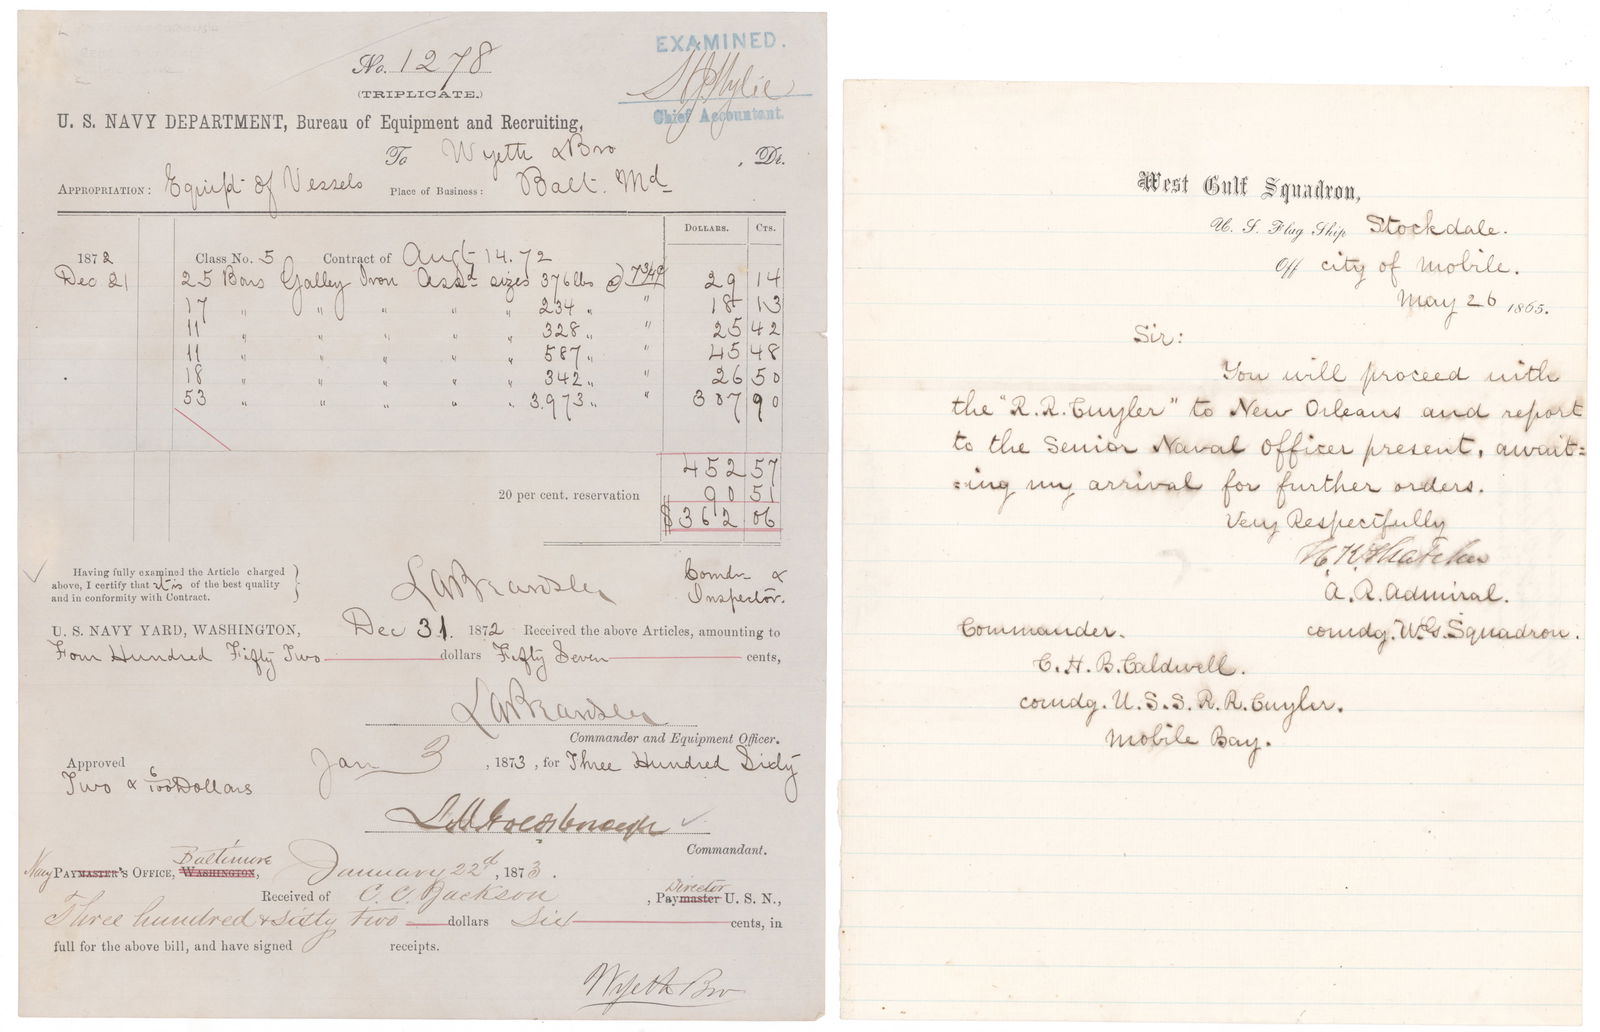 No. 1278
(TRIPLICATE.)
EXAMINED.
Chief Accountant.
U. S. NAVY DEPARTMENT, Bureau of Equipment and Recruiting,
To Wyeth & Bro , Dr.
APPROPRIATION: Equipt of Vessels Place of Business: Balt. Md
DOLLARS. CTS.
1872 Class No. 5 Contract of Augt 14. 72
Dec 21 25 Bars Galley Iron Assd sizes 376 lbs @ 7 3/4¢ 29 14
17 " " " " " 234 " " 18 13
11 " " " " " 328 " " 25 42
11 " " " " " 587 " " 45 48
18 " " " " " 342 " " 26 50
53 " " " " " 3.973 " " 307 90
452 57
20 per cent. reservation 90 51
$ 362 06
Having fully examined the Article charged
above, I certify that it is of the best quality
and in conformity with Contract.
Comdr &
Inspector.
U. S. NAVY YARD, WASHINGTON, Dec 31. 1872 Received the above Articles, amounting to
Four Hundred Fifty Two dollars Fifty Seven cents,
Commander and Equipment Officer.
Approved Jan 3 , 1873, for Three Hundred Sixty
Two & 6/100 Dollars
Commandant.
Navy PAYMASTER'S OFFICE, WASHINGTON, Baltimore January 22d, 1873.
Received of C. C. Jackson , Paymaster Director U. S. N.,
Three hundred & sixty two dollars Six cents, in
full for the above bill, and have signed receipts.
Wyeth Bro
West Gulf Squadron,
U. S. Flag Ship Stockdale.
Off city of Mobile.
May 26 1865.
Sir:
You will proceed with
the "R. R. Cuyler" to New Orleans and report
to the Senior Naval Officer present, await=
=ing my arrival for further orders.
Very Respectfully
H. K. Thatcher
A. R. Admiral.
Commander. comdg. W. G. Squadron.
C. H. B. Caldwell.
comdg. U. S. S. R. R. Cuyler.
Mobile Bay.